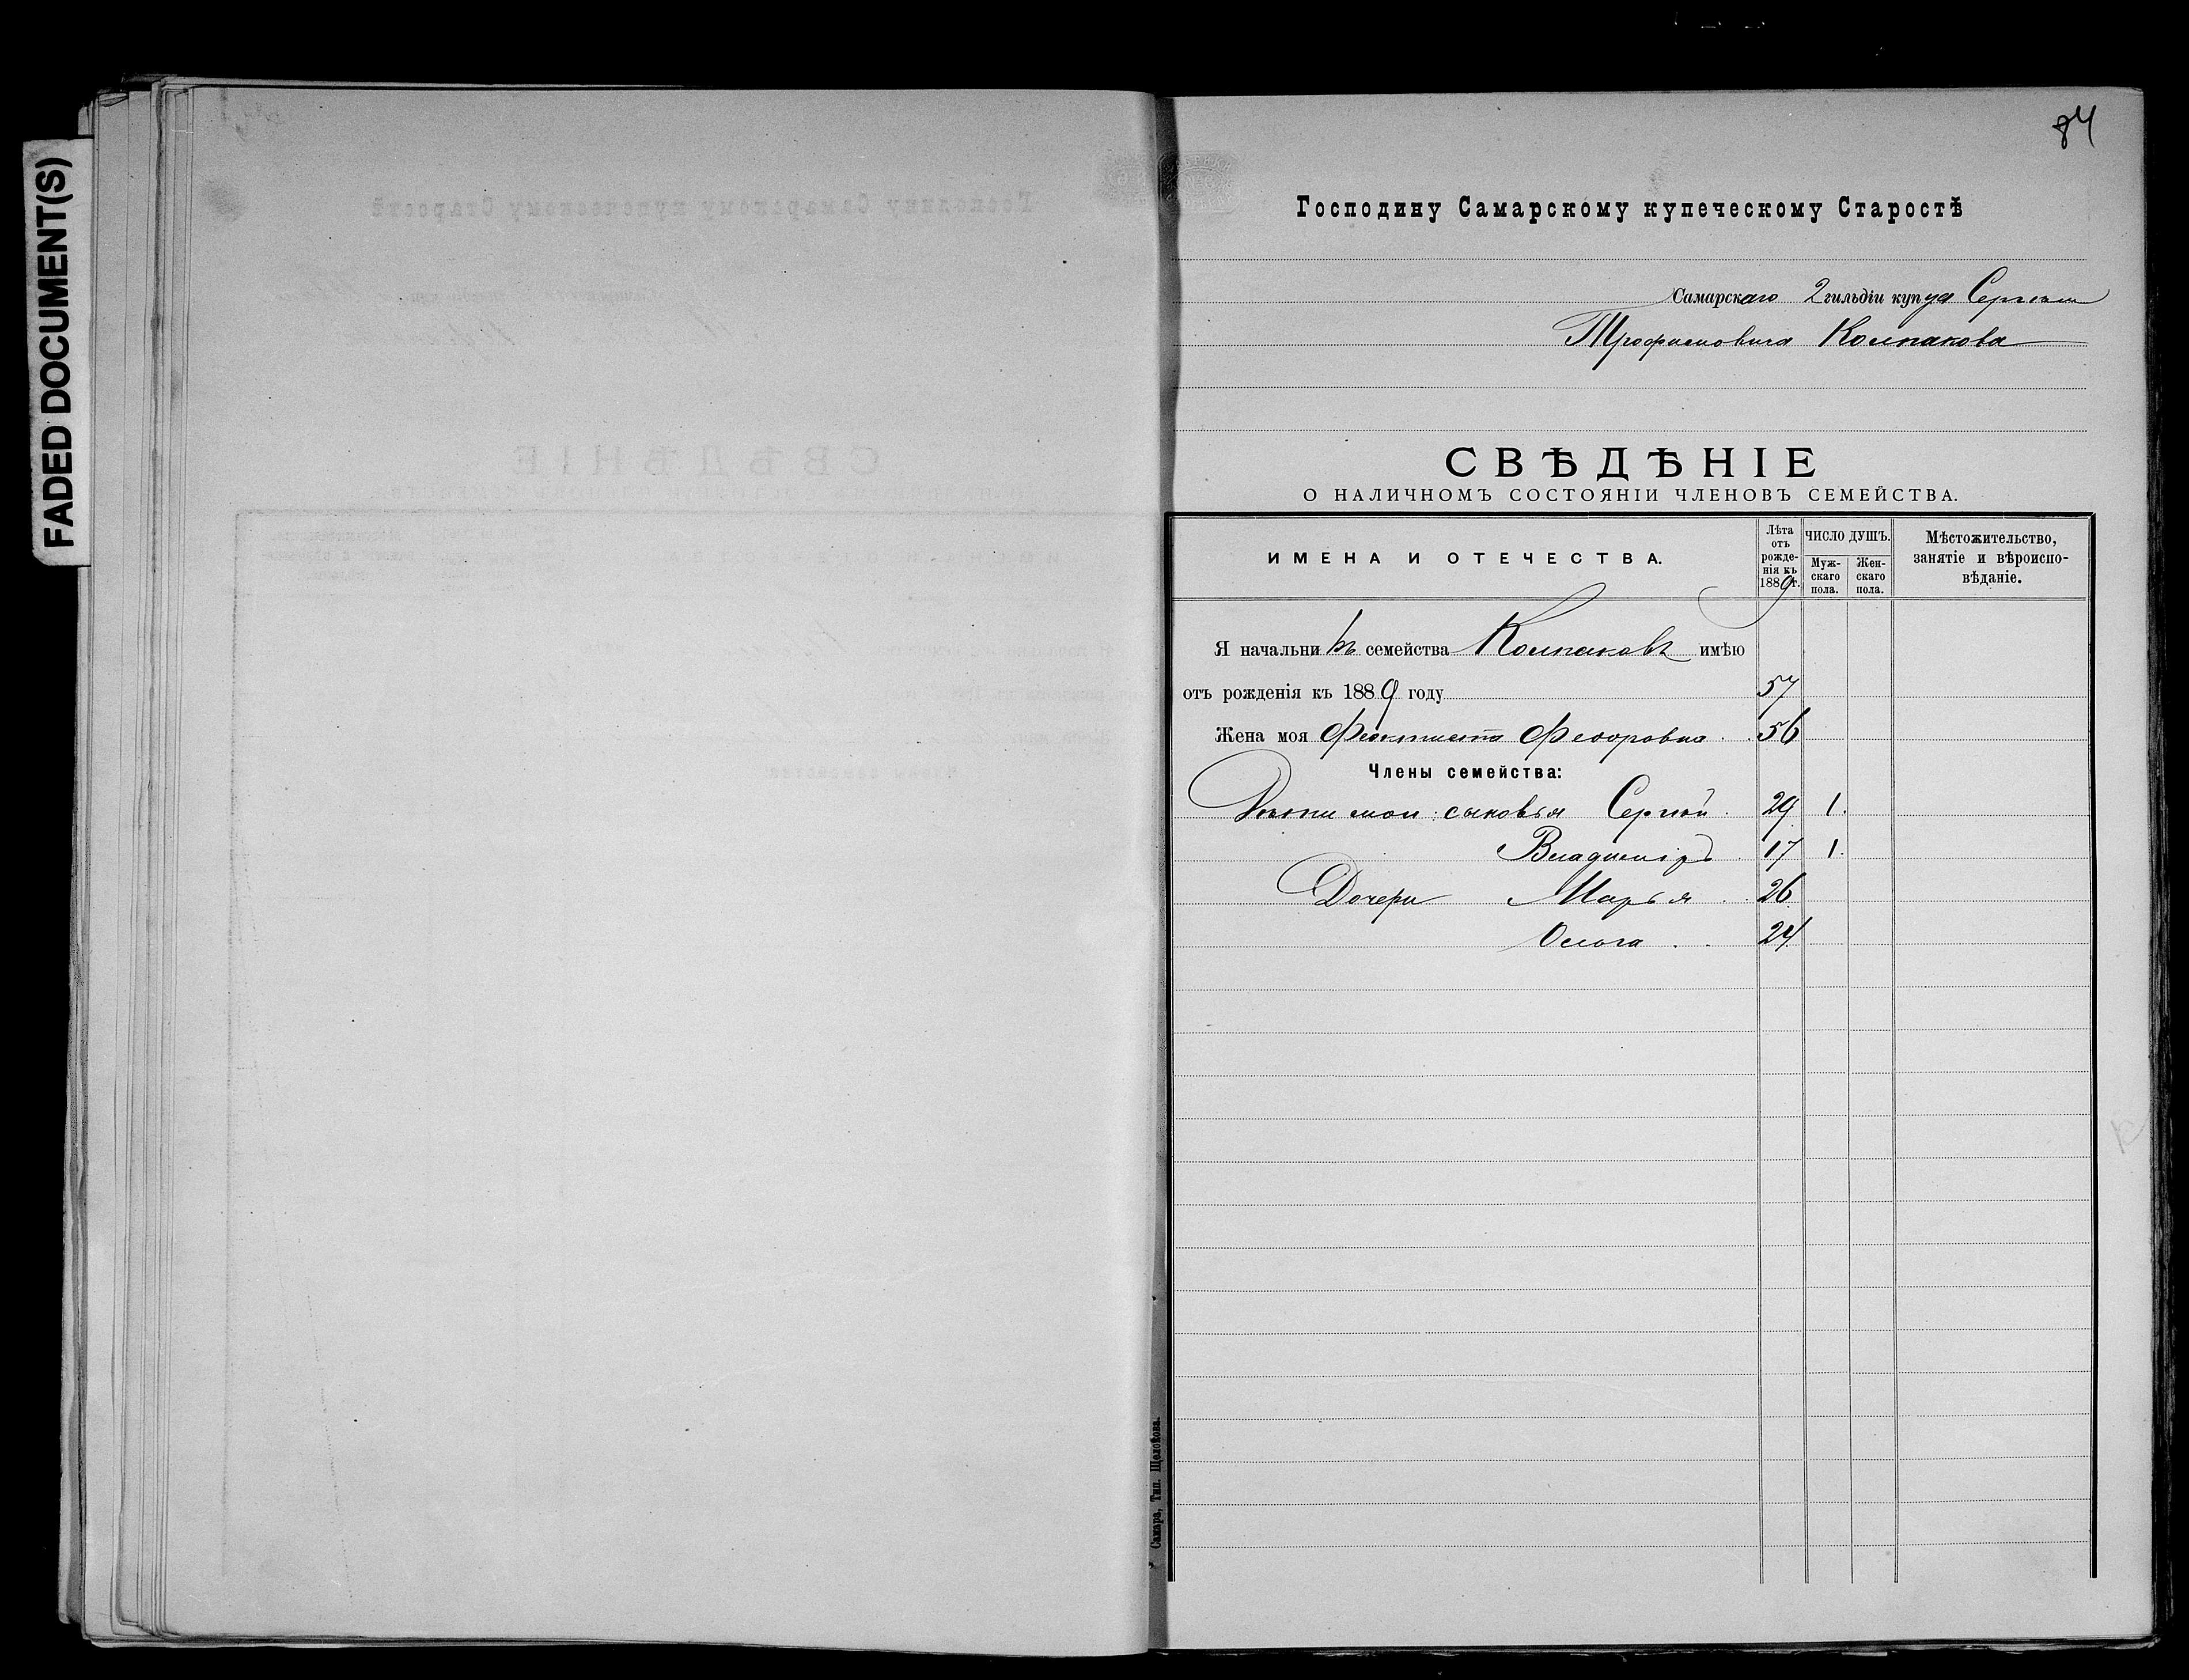 FADED DOCUMENT(S)
84
Господину Самарскому купеческому Старостѣ
Самарскаго 2 гильдіи купца Сергѣя
Трофимовича Колпакова
СВѢДѢНІЕ
О НАЛИЧНОМЪ СОСТОЯНІИ ЧЛЕНОВЪ СЕМЕЙСТВА.
ИМЕНА И ОТЕЧЕСТВА.
Лѣта отъ рожденія къ 1889 г.
ЧИСЛО ДУШЪ.
Мужскаго пола.
Женскаго пола.
Мѣстожительство, занятіе и вѣроисповѣданіе.
Я начальникъ семейства Колпаковъ имѣю
отъ рожденія къ 1889 году 57
Жена моя Феоктиста Федоровна 56
Члены семейства:
Дѣти мои: сыновья Сергѣй 29 1.
Владиміръ 17 1.
Дочери Марья 26
Ольга 24
Самара, Тип. Щелокова.